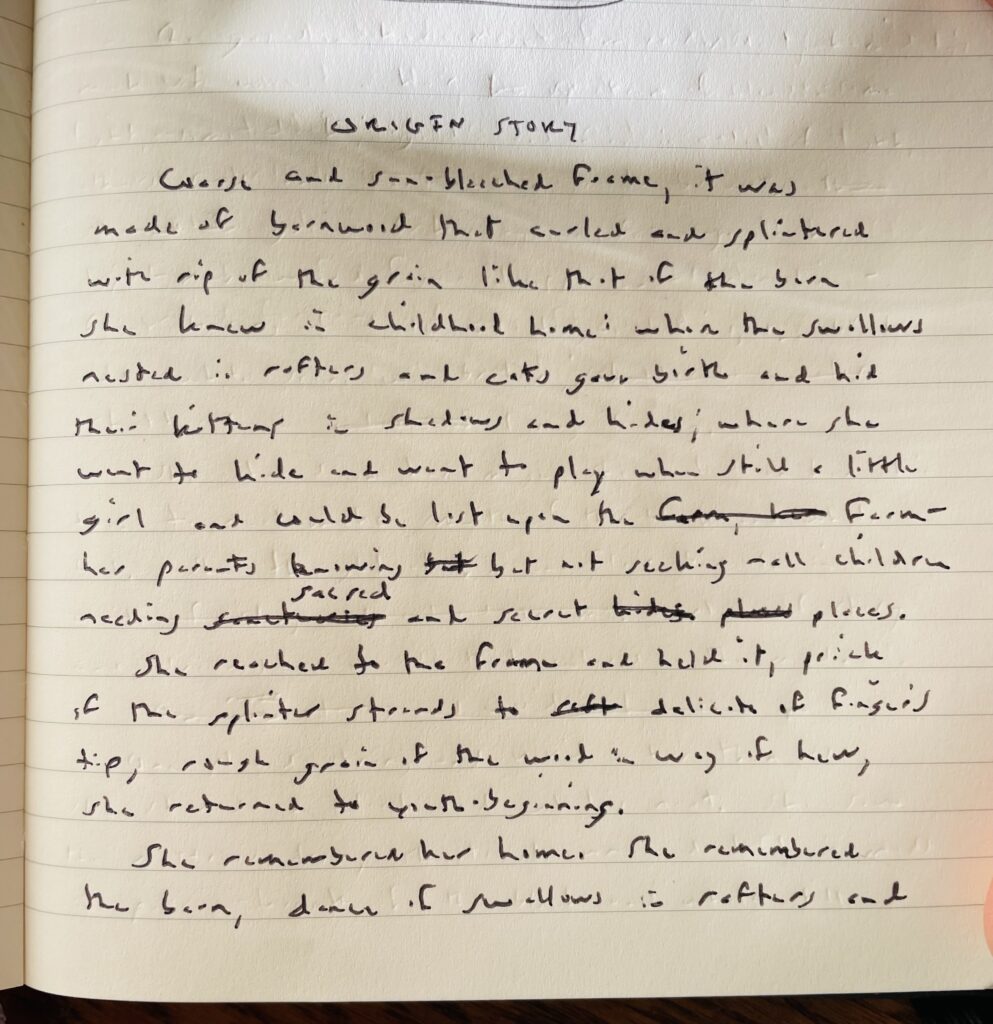 ORIGIN STORY
Coarse and sun-bleached frame, it was
made of barnwood that curled and splintered
with rip of the grain like that of the barn
she knew in childhood home: where the swallows
nested in rafters and cats gave birth and hid
their kittens in shadows and hides; where she
went to hide and went to play when still a little
girl and could be lost upon the farm, her farm—
her parents knowing but but not seeking - all children
sacred
needing sanctuaries and secret hides places places.
She reached to the frame and held it, prick
of the splinter strands to soft delicate of finger's
tip, rough grain of the wood in way of hew,
she returned to youth-beginning.
She remembered her home. She remembered
the barn, dance of swallows in rafters and